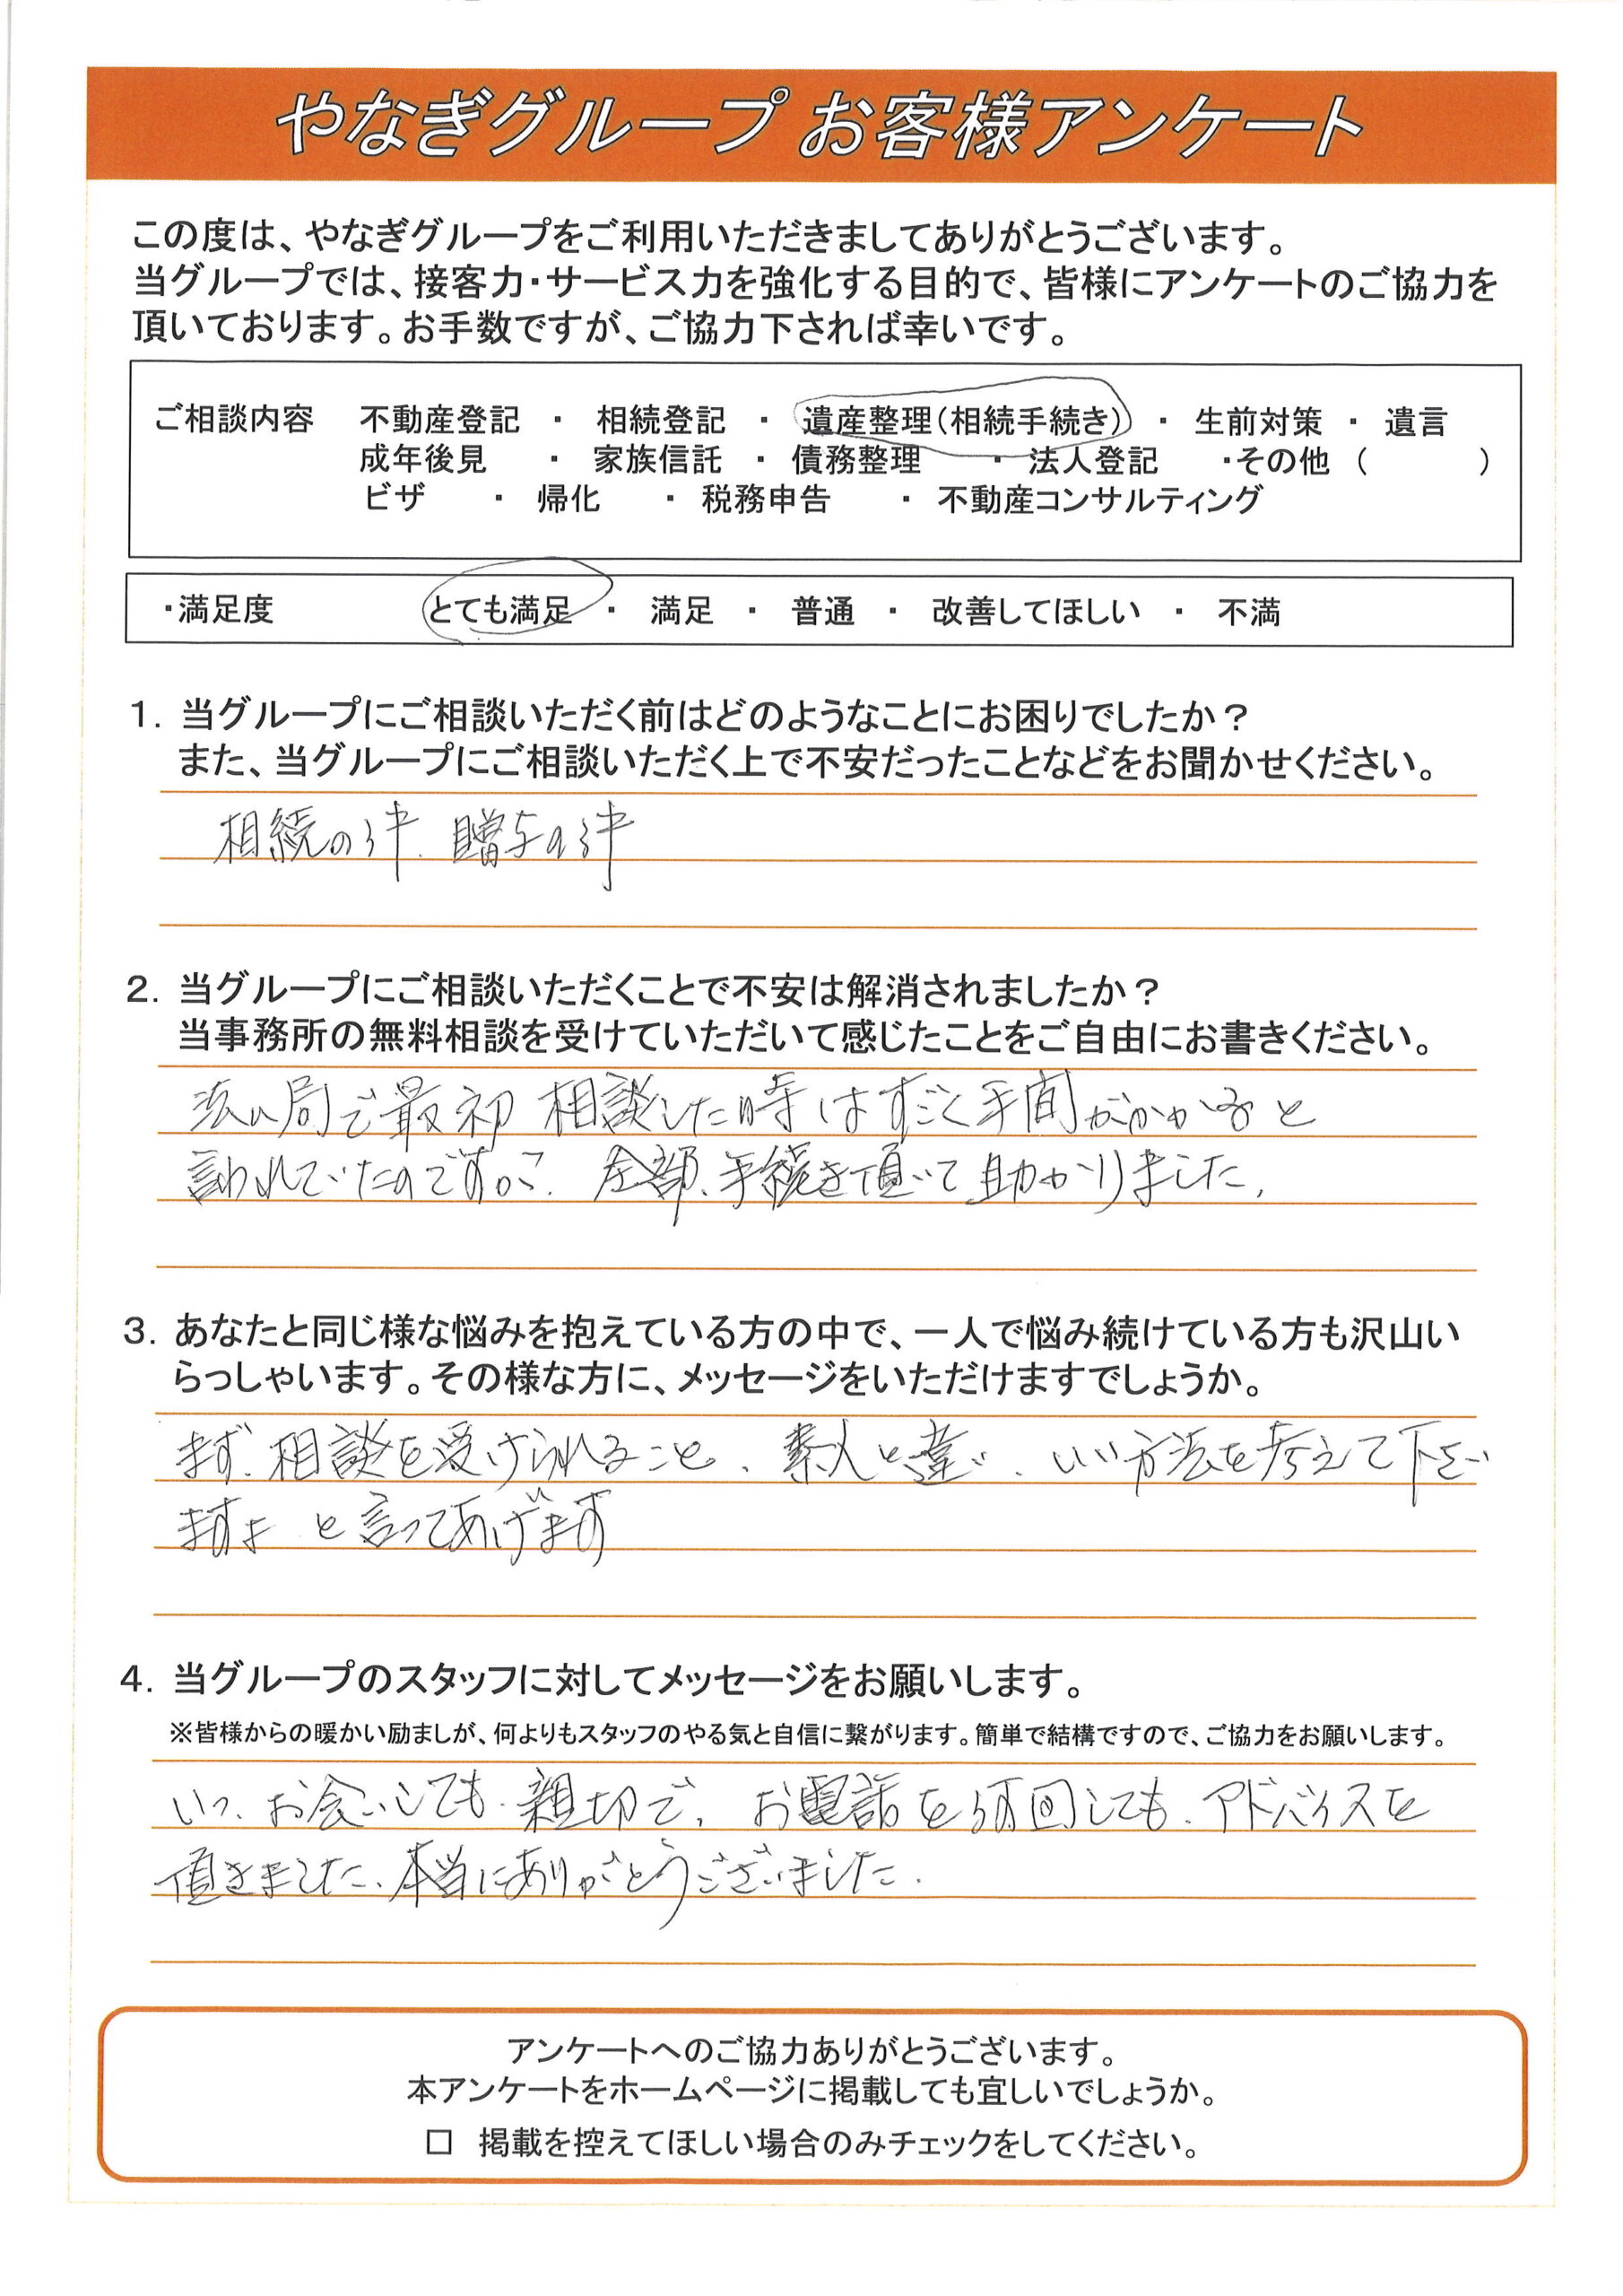 やなぎグループ お客様アンケート
この度は、やなぎグループをご利用いただきましてありがとうございます。
当グループでは、接客力・サービス力を強化する目的で、皆様にアンケートのご協力を
頂いております。お手数ですが、ご協力下されば幸いです。
ご相談内容 不動産登記 ・ 相続登記 ・ 遺産整理(相続手続き) ・ 生前対策 ・ 遺言
成年後見 ・ 家族信託 ・ 債務整理 ・ 法人登記 ・その他 ( )
ビザ ・ 帰化 ・ 税務申告 ・ 不動産コンサルティング
・満足度 とても満足 ・ 満足 ・ 普通 ・ 改善してほしい ・ 不満
1. 当グループにご相談いただく前はどのようなことにお困りでしたか?
また、当グループにご相談いただく上で不安だったことなどをお聞かせください。
相続の件、贈与の件
2. 当グループにご相談いただくことで不安は解消されましたか?
当事務所の無料相談を受けていただいて感じたことをご自由にお書きください。
法ム局で最初 相談した時はすごく手間がかかると
言われていたのですが、全部、手続き頂いて助かりました。
3. あなたと同じ様な悩みを抱えている方の中で、一人で悩み続けている方も沢山い
らっしゃいます。その様な方に、メッセージをいただけますでしょうか。
まず、相談を受けられること、素人と違い、いい方法を考えて下さい
ますよ と言ってあげます
4. 当グループのスタッフに対してメッセージをお願いします。
※皆様からの暖かい励ましが、何よりもスタッフのやる気と自信に繋がります。簡単で結構ですので、ご協力をお願いします。
いつ、お会いしても、親切で、お電話を何回しても、アドバイスを
頂きました、本当にありがとうございました。
アンケートへのご協力ありがとうございます。
本アンケートをホームページに掲載しても宜しいでしょうか。
□ 掲載を控えてほしい場合のみチェックをしてください。